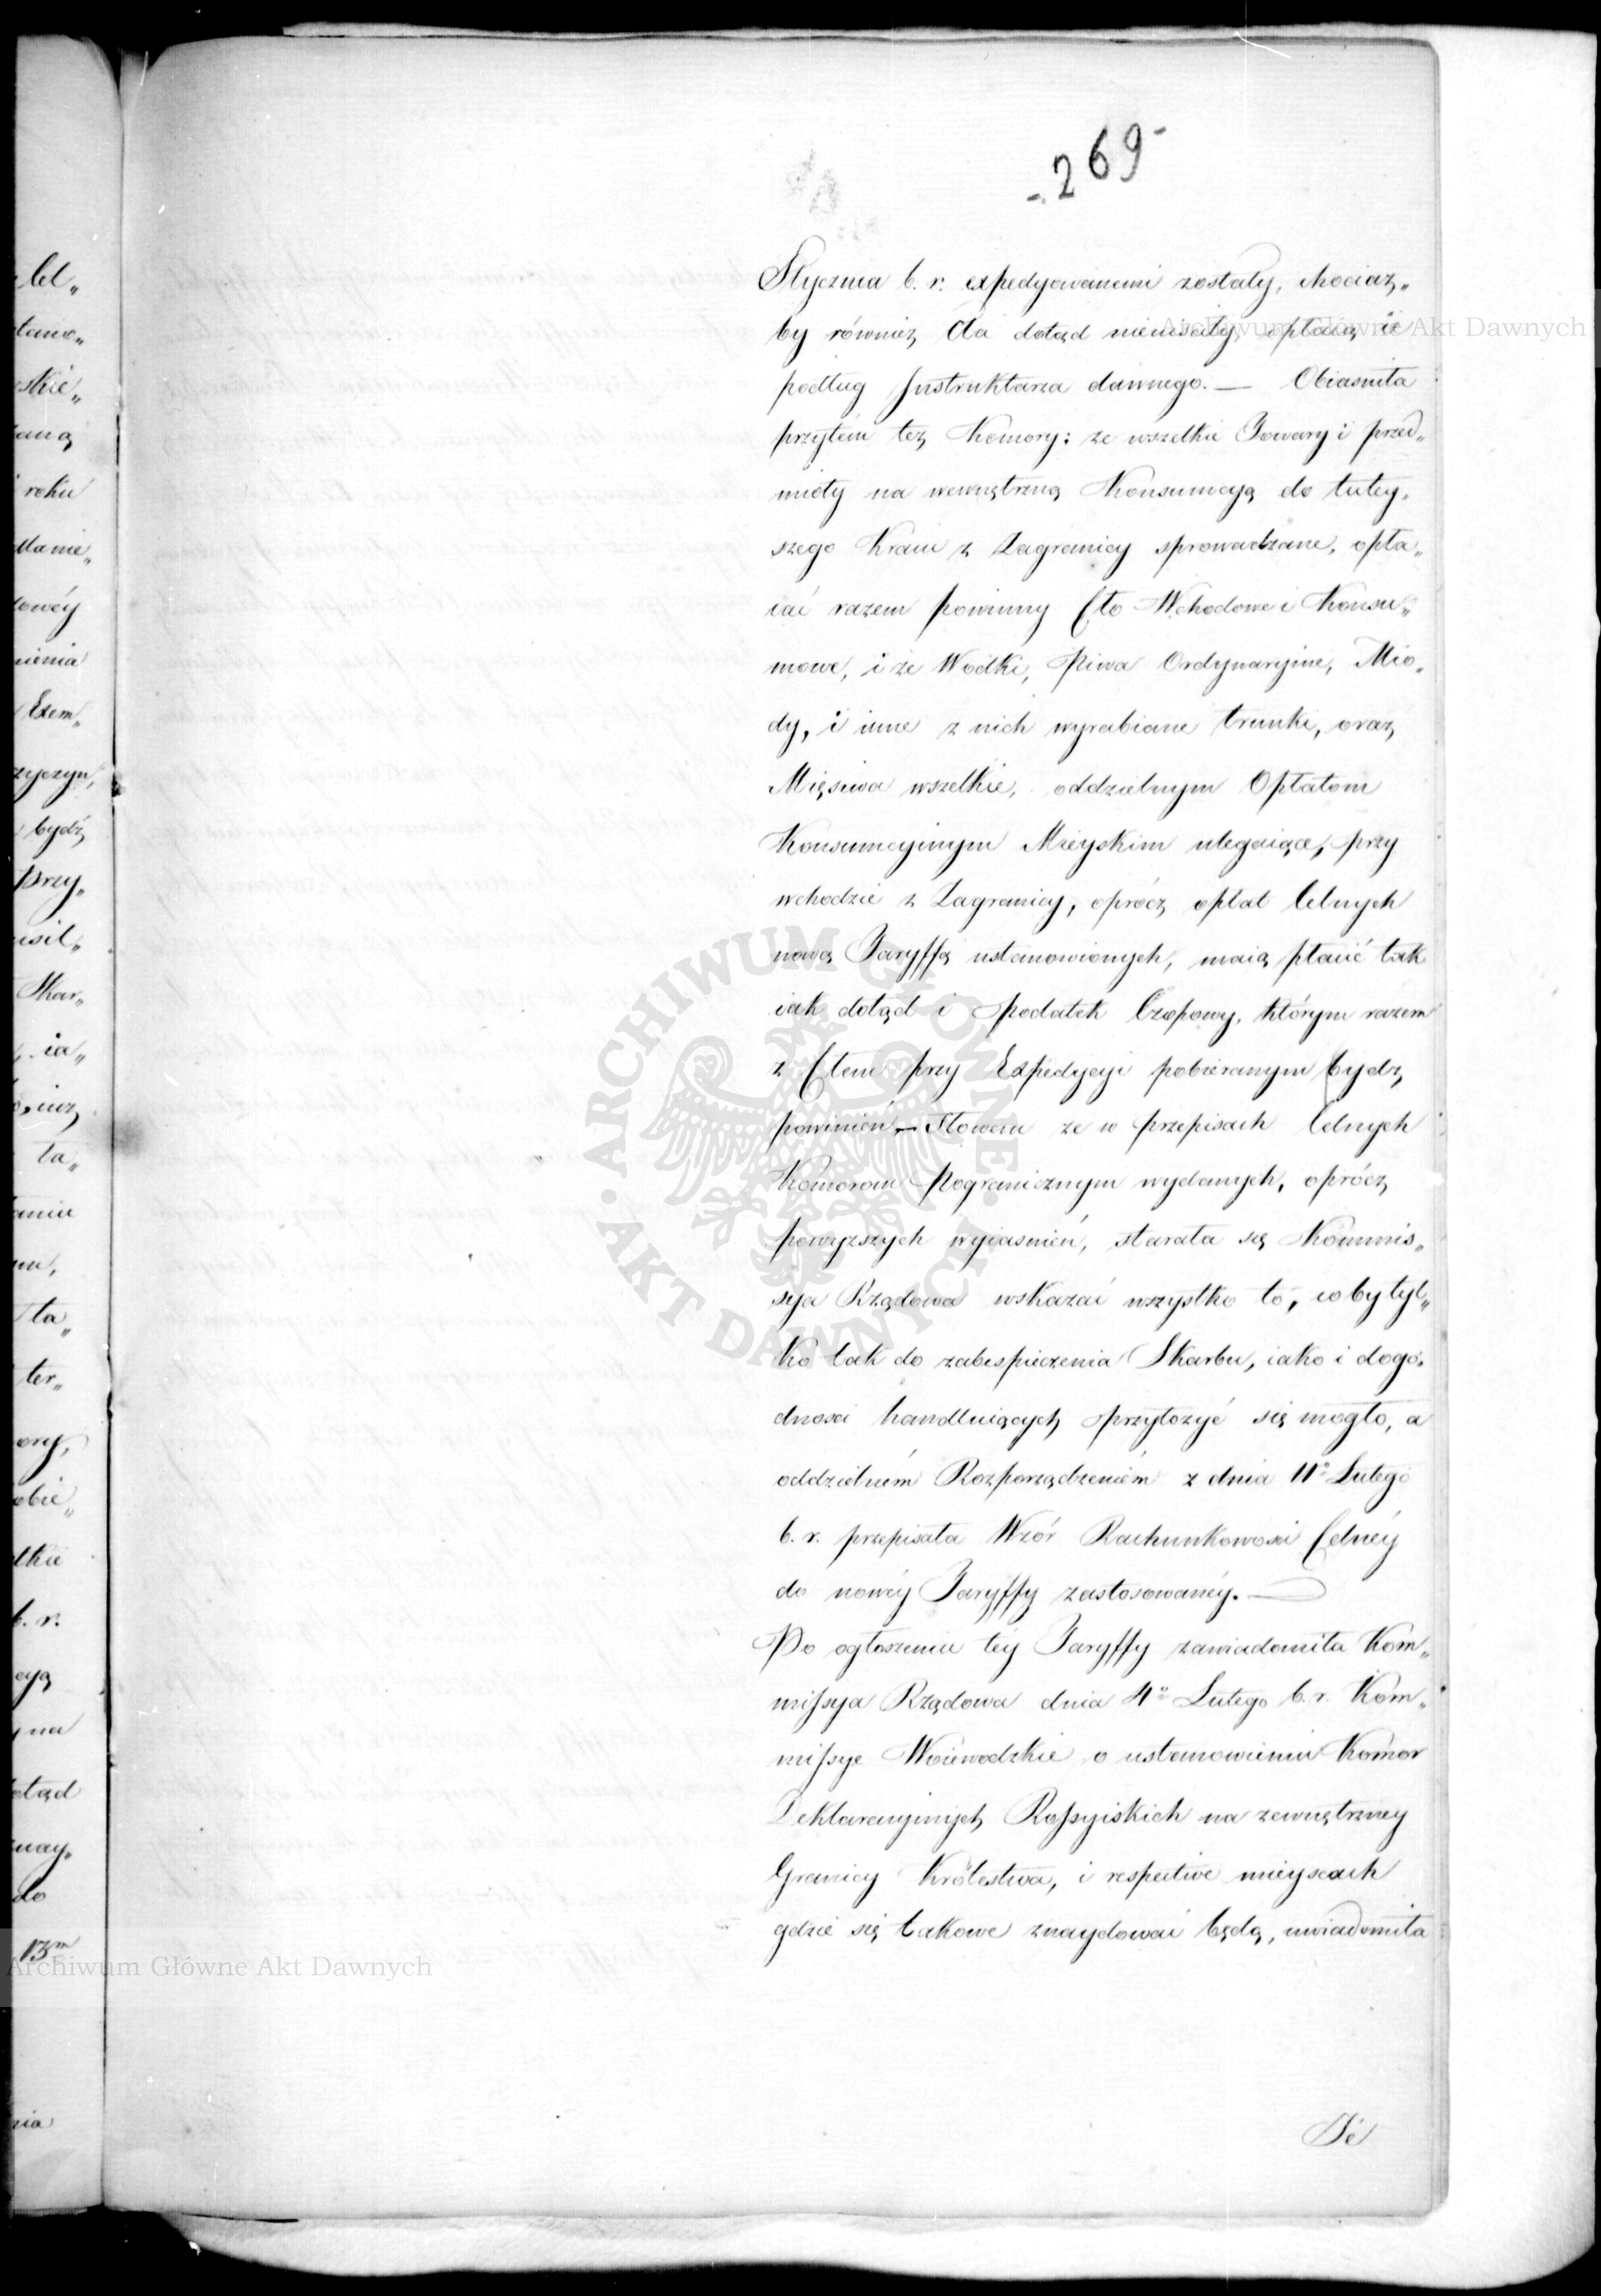 - 269 -
Stycznia b. r. expedyowanemi zostały, chociaż„
by również Cła dotąd nieuiściły, opłacą ie
podług Instruktarza dawnego. — Obiasniła
przytém też Komory: że wszelkie Towary i przed„
mioty na wewnętrzną Konsumcyą do tutey„
szego Kraiu z Zagranicy sprowadzane, opła„
cać razem powinny Cło Wchodowe i Konsu„
mowe, i że Wodki, Piwa Ordynaryine, Mio„
dy, i inne z nich wyrabiane trunki, oraz
Mięsiwa wszelkie, oddzielnym Opłatom
Konsumcyinym Mieyskim ulegaiące, przy
wchodzie z Zagranicy, oprócz opłat Celnych
nową Taryffą ustanowionych, maią płacić tak
iak dotąd i Podatek Czopowy, którym razem
z Cłem przy Expedycyi pobieranym bydź
powinien. — Słowem że w przepisach Celnych
Komorom Pogranicznym wydanych, oprócz
powyższych wyiasnień, starała się Kommis„
sya Rządowa wskazać wszystko to, coby tyl„
ko tak do zabespieczenia Skarbu, iako i dogo„
dnosci handluiących przyłożyć się mogło, a
oddzielném Rozporządzeniém z dnia 11º Lutego
b. r. przepisała Wzór Rachunkowosci Celnéy
do nowéy Taryffy zastosowanéy. —
Po ogłoszeniu téy Taryffy zawiadomiła Kom„
missya Rządowa dnia 4º Lutego b. r. Kom„
missye Woiewodzkie o ustanowieniu Komor
Deklaracyinych Rossyiskich na zewnętrzney
Granicy Królestwa, i respective mieyscach
gdzie się takowe znaydować będą, uwiadomiła
Té
Cel„
skie„
roku
nienia
Exem„
bydź
Przy„
Skar„
ia„
ta„
ter„
b. r.
do
13m
ARCHIWUM GŁÓWNE · AKT DAWNYCH ·
Archiwum Główne Akt Dawnych
Archiwum Główne Akt Dawnych